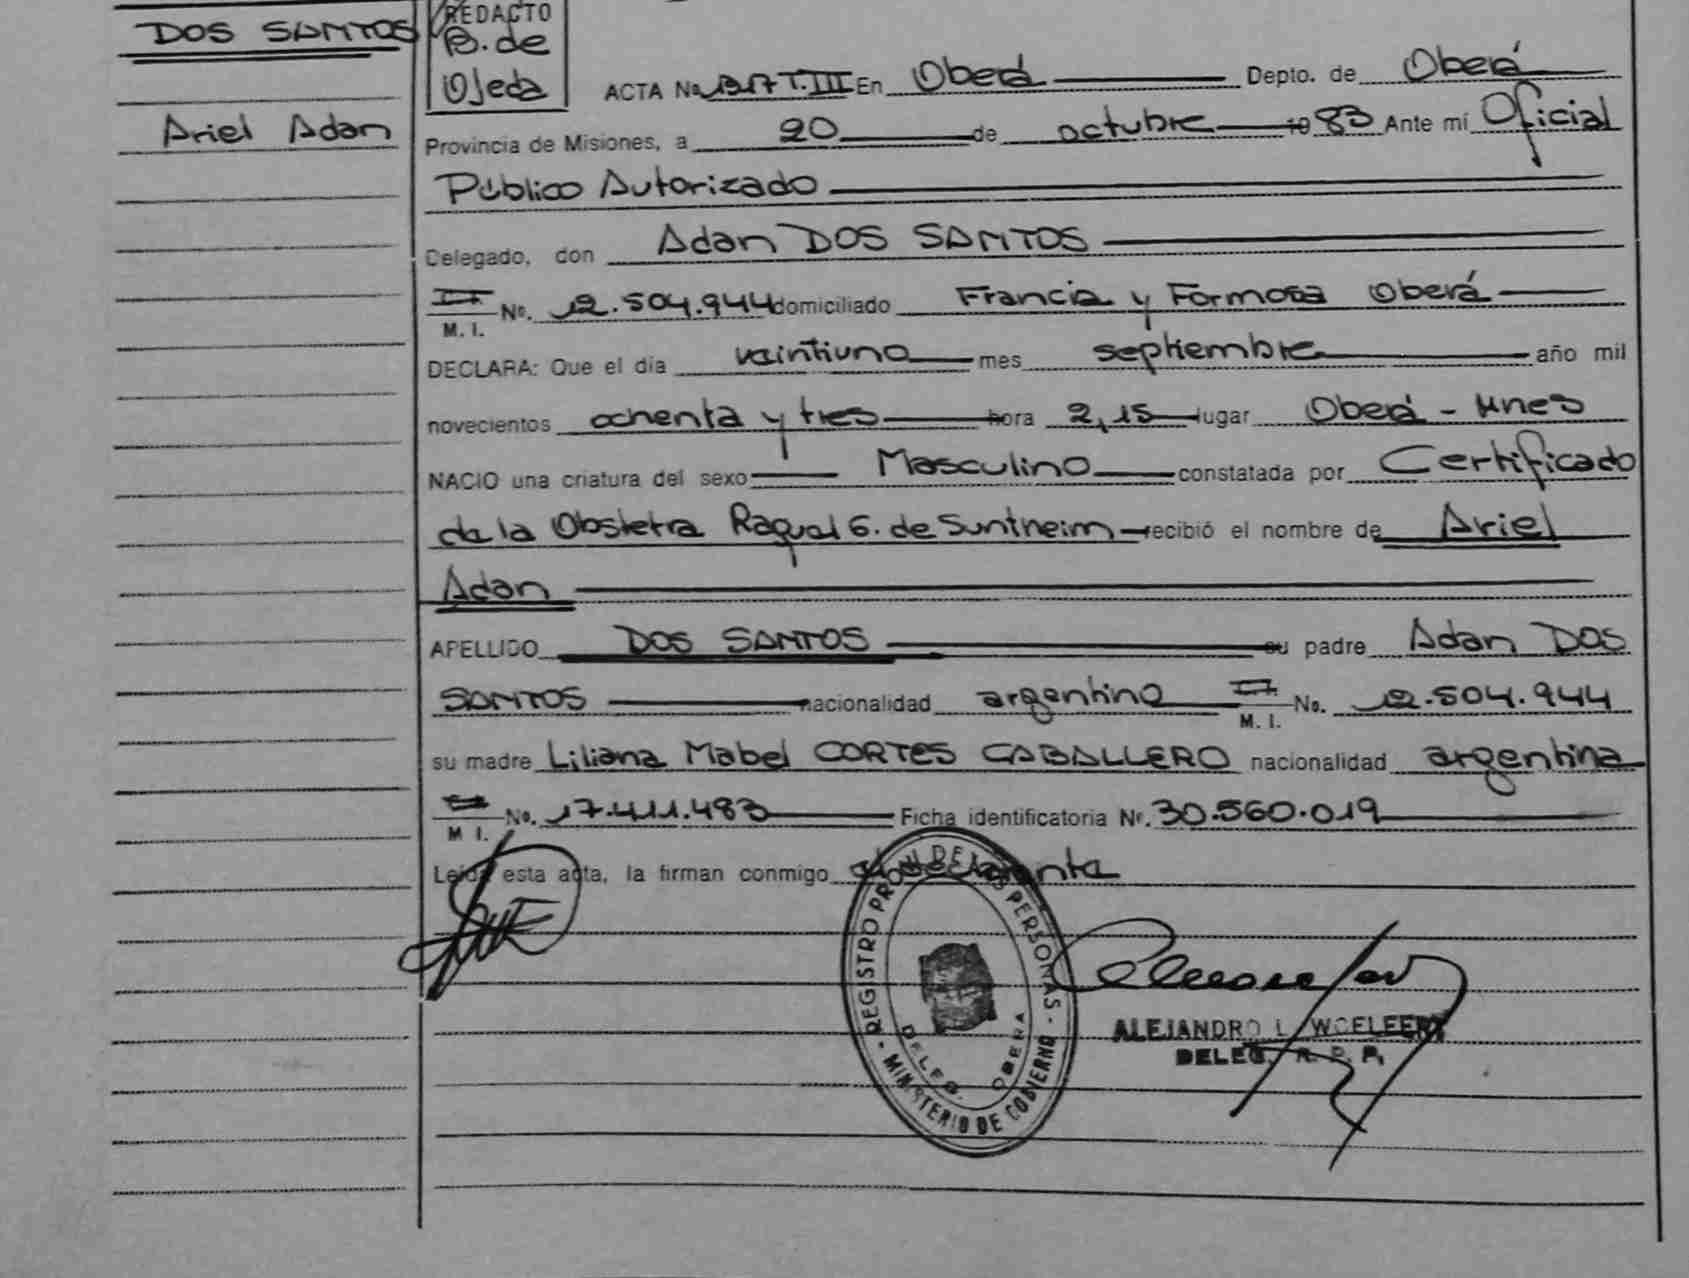 DOS SANTOS
Ariel Adan
REDACTO
B. de
Ojeda
ACTA No 1317 T.III En Oberá Depto. de Oberá
Provincia de Misiones, a 20 de octubre 1983 Ante mí Oficial
Público Autorizado
Delegado, don Adan DOS SANTOS
M. I. No. 12.504.944 domiciliado Francia y Formosa Oberá
DECLARA: Que el día veintiuno mes septiembre año mil
novecientos ochenta y tres hora 2,15 lugar Oberá - Mnes
NACIO una criatura del sexo Masculino constatada por Certificado
de la Obstetra Raquel G. de Suntheim recibió el nombre de Ariel
Adan
APELLIDO DOS SANTOS su padre Adan DOS
SANTOS nacionalidad argentino M. I. No. 12.504.944
su madre Liliana Mabel CORTES CABALLERO nacionalidad argentina
M I. No. 17.411.483 Ficha identificatoria Nº. 30.560.019
Leída esta acta, la firman conmigo
REGISTRO PROV. DE LAS PERSONAS - MINISTERIO DE GOBIERNO -
DELEG. OBERA
ALEJANDRO L. WOELFERT
DELEG. R. P. P.